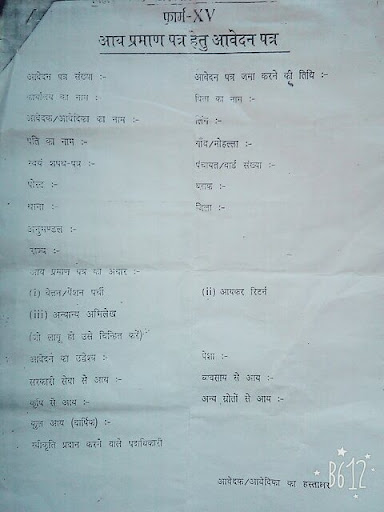 फार्म-XV
आय प्रमाण पत्र हेतु आवेदन पत्र
आवेदन पत्र संख्या :- आवेदन पत्र जमा करने की तिथि :-
कार्यालय का नाम : पिता का नाम :-
आवेदक/आवेदिका का नाम :- लिंग :-
पति का नाम :- गाँव/मोहल्ला :-
स्वयं शपथ-पत्र :- पंचायत/वार्ड संख्या :-
पोस्ट :- ब्लॉक :-
थाना :- जिला :-
अनुमण्डल :-
राज्य :-
आय प्रमाण पत्र का आधार :-
(i) वेतन/पेंशन पर्ची (ii) आयकर रिटर्न
(iii) अन्यान्य अभिलेख
(जो लागू हो उसे चिन्हित करें)
आवेदन का उद्देश्य :- पेशा :-
सरकारी सेवा से आय :- व्यवसाय से आय :-
कृषि से आय :- अन्य स्रोतों से आय :-
कुल आय (वार्षिक) :-
स्वीकृति प्रदान करने वाले पदाधिकारी
आवेदक/आवेदिका का हस्ताक्षर
B612